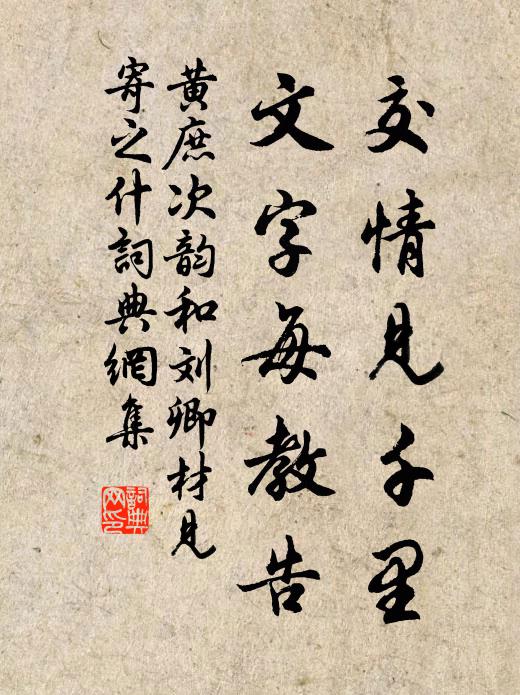 交情見千里
文字每教告
黄庶次韵和刘卿材见
寄之什詞典網集
詞典
网印